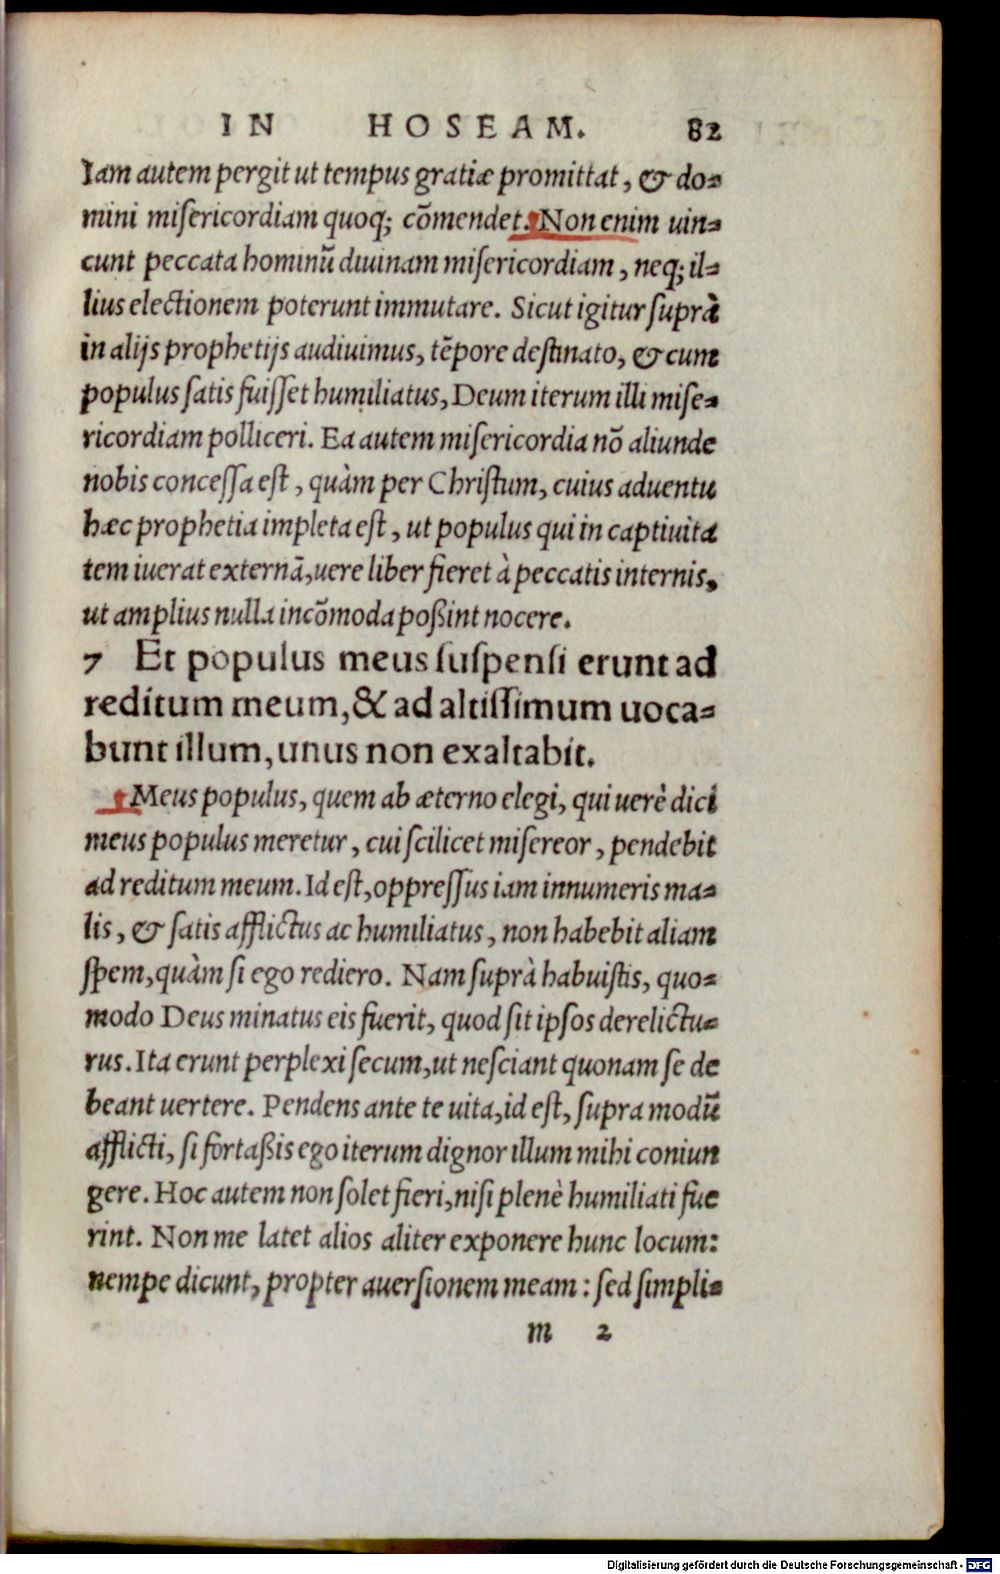 IN HOSEAM. 82
Iam autem pergit ut tempus gratiæ promittat, & do-
mini miſericordiam quoq; cōmendet. Non enim uin-
cunt peccata hominū diuinam miſericordiam, neq; il-
lius electionem poterunt immutare. Sicut igitur ſuprà
in alijs prophetijs audiuimus, tēpore deſtinato, & cum
populus ſatis fuiſſet humiliatus, Deum iterum illi miſe-
ricordiam polliceri. Ea autem miſericordia nō aliunde
nobis conceſſa eſt, quàm per Chriſtum, cuius aduentu
hæc prophetia impleta eſt, ut populus qui in captiuita
tem iuerat externā, uere liber fieret à peccatis internis,
ut amplius nulla incōmoda poßint nocere.
7 Et populus meus ſuſpenſi erunt ad
reditum meum, & ad altiſſimum uoca-
bunt illum, unus non exaltabit.
Meus populus, quem ab æterno elegi, qui uerè dici
meus populus meretur, cui ſcilicet miſereor, pendebit
ad reditum meum. Id eſt, oppreſſus iam innumeris ma-
lis, & ſatis afflictus ac humiliatus, non habebit aliam
ſpem, quàm ſi ego rediero. Nam ſuprà habuiſtis, quo-
modo Deus minatus eis fuerit, quod ſit ipſos derelictu-
rus. Ita erunt perplexi ſecum, ut neſciant quonam ſe de
beant uertere. Pendens ante te uita, id eſt, ſupra modū
afflicti, ſi fortaßis ego iterum dignor illum mihi coniun
gere. Hoc autem non ſolet fieri, niſi plenè humiliati fue
rint. Non me latet alios aliter exponere hunc locum:
nempe dicunt, propter auerſionem meam: ſed ſimpli-
m 2
Digitalisierung gefördert durch die Deutsche Forschungsgemeinschaft - DFG